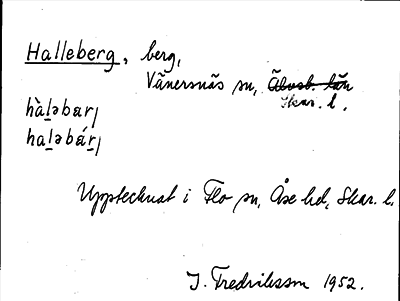 Halleberg, berg,
Vänersnäs sn, Älvsb. län
Skar. l.
hàl̲əbarj
hal̲əbár̲j
Upptecknat i Flo sn, Åse hd, Skar. l.
J. Fredriksson 1952.